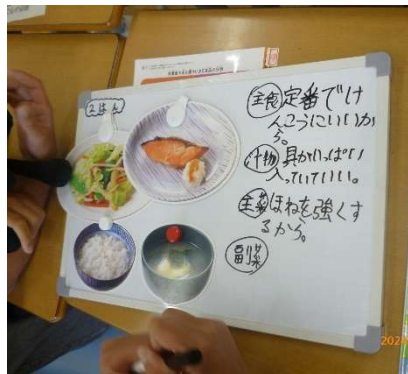 ごはん
主食 定番でけ
んこうにいいか
ら。
汁物 具がいっぱい
入っていていい。
主菜 ほねを強くす
るから。
副菜
202